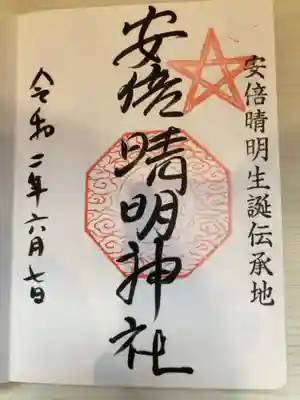 安倍晴明生誕伝承地
安倍晴明神社
令和二年六月七日